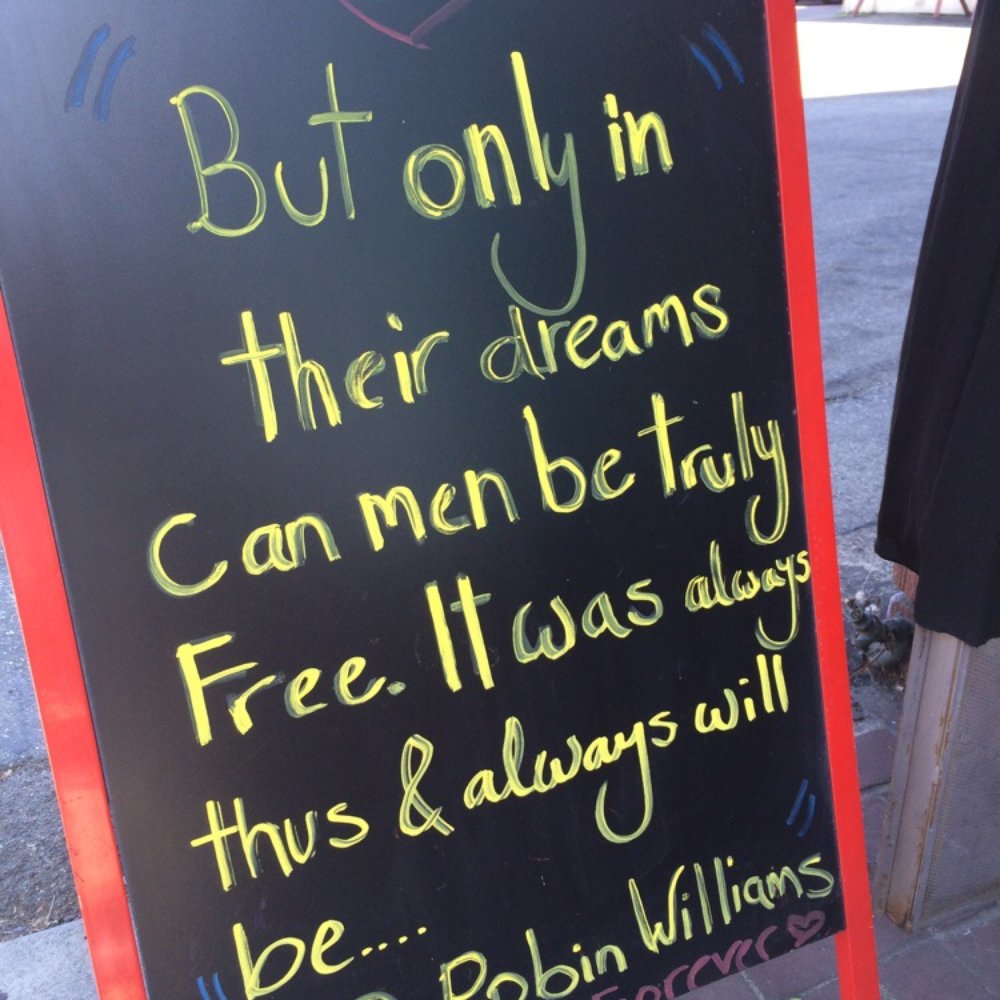 " But only in "
their dreams
Can men be truly
Free. It was always
thus & always will
be.... "
Robin Williams
Forever